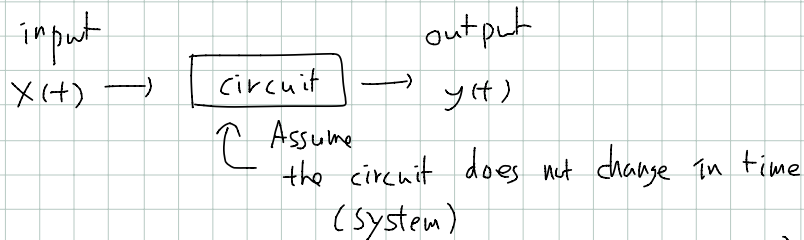 input
output
x(t) → circuit → y(t)
Assume
the circuit does not change in time
(system)